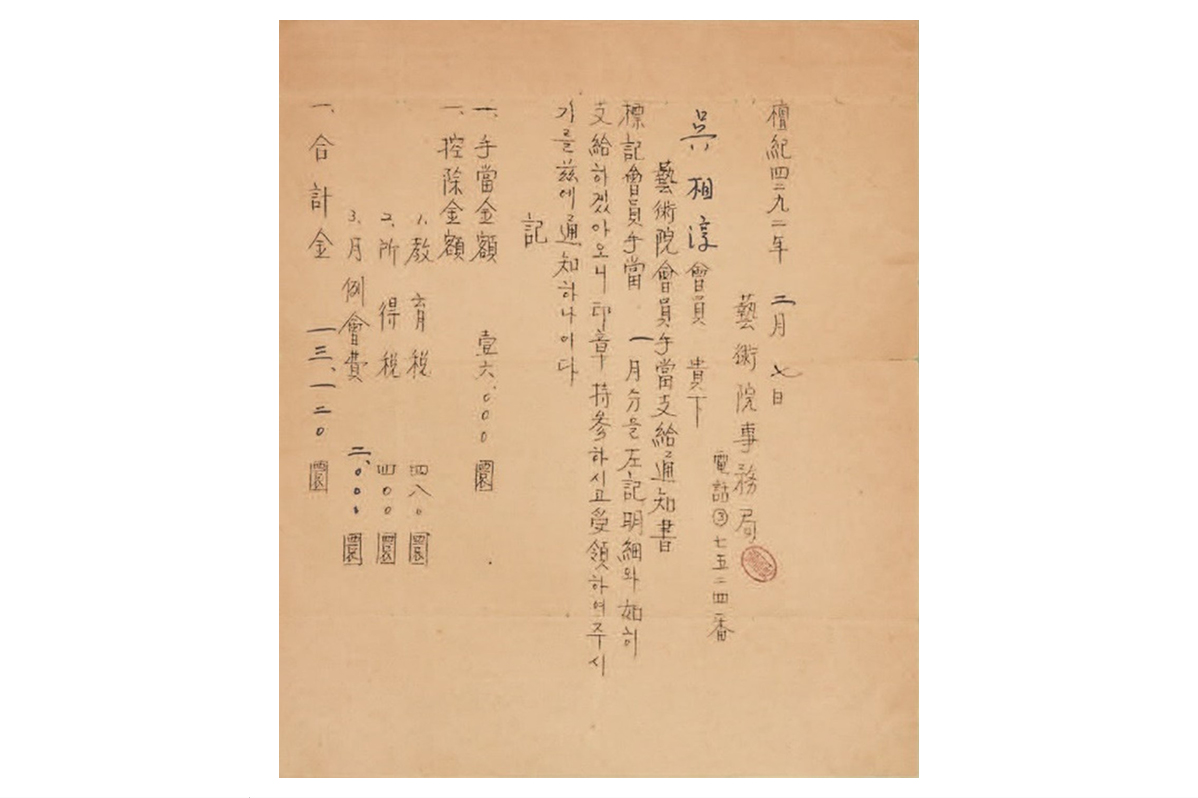 檀紀四二九二年 二月 七日
藝術院事務局
電話③七五二四番
呉相淳會員 貴下
藝術院會員手當支給通知書
標記會員手當 一月分을左記明細와如히
支給하겠아오니印章持參하시고受領하여주시
기를玆에通知하나이다
記
一、手當金額 壹六.000圜
一、控除金額
1. 教育税 四八0圜
2. 所得税 四00圜
3. 月例會費 二、000圜
一、合計金 一三、一二0圜